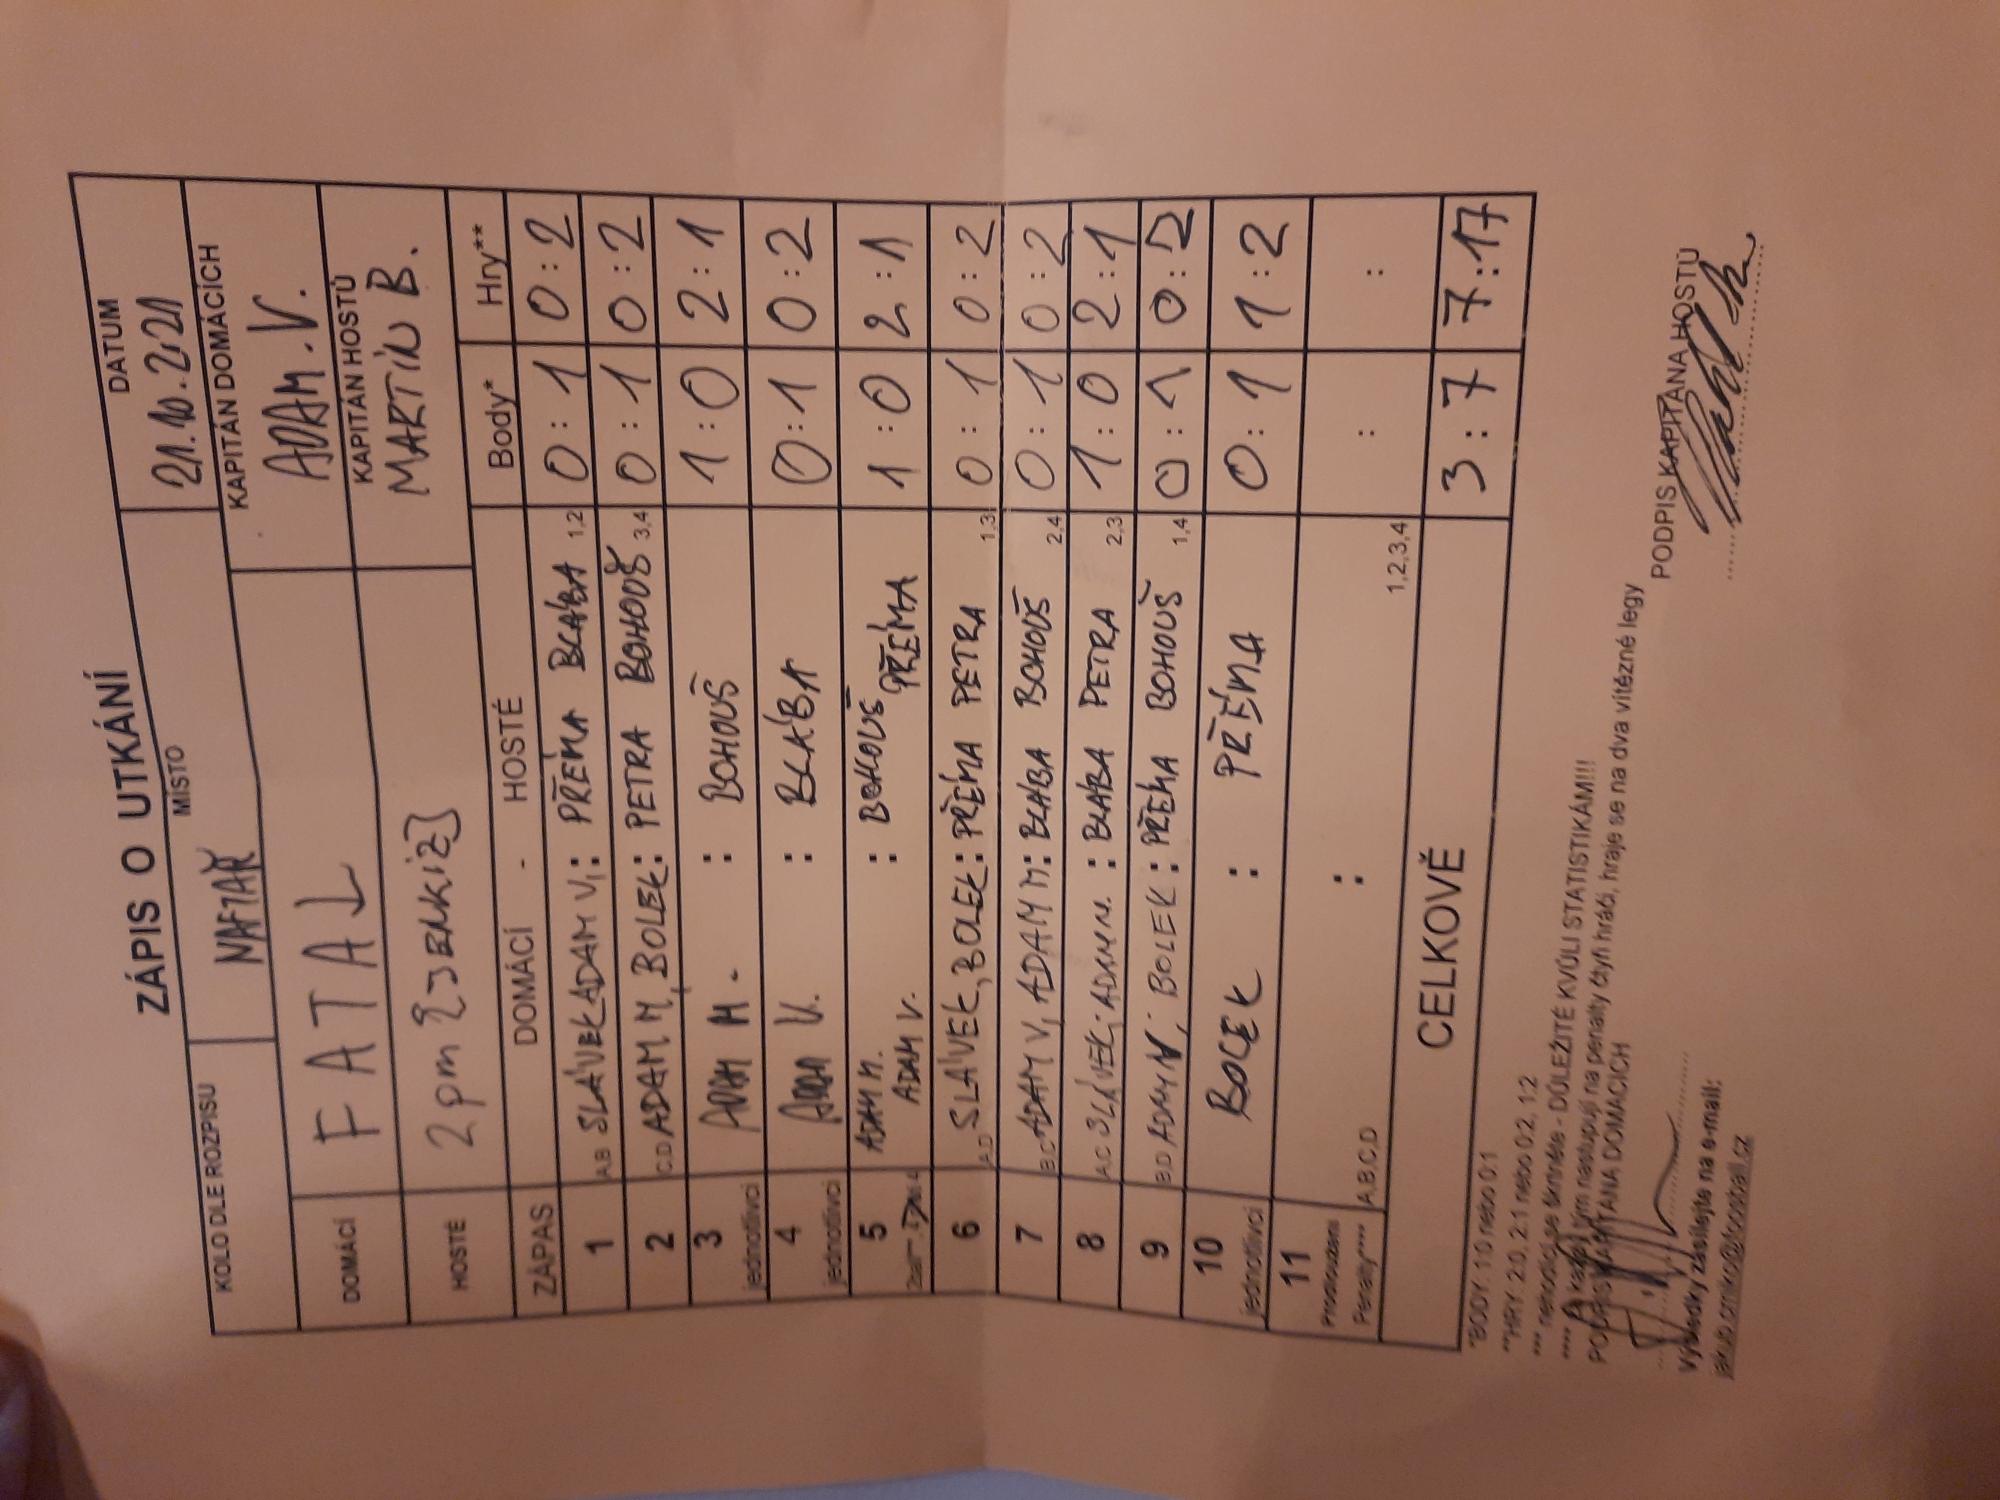 ZÁPIS O UTKÁNÍ
KOLO DLE ROZPISU MÍSTO DATUM
NAFTAŘ 21.10.2021
DOMÁCÍ FATAL KAPITÁN DOMÁCÍCH
ADAM.V.
HOSTÉ 2pm KAPITÁN HOSTŮ
MARTIN B.
ZÁPAS DOMÁCÍ - HOSTÉ Body* Hry**
1 A,B SLÁVEK ADAM V. : PŘÉMA BLÁBA 1,2 0:1 0:2
2 C,D ADAM M, BOLEK : PETRA BOHOUŠ 3,4 0:1 0:2
3 jednotlivci ADAM M. : BOHOUŠ 1:0 2:1
4 jednotlivci ADAM V. : BLÁBA 0:1 0:2
5 ADAM M. ADAM V. : BOHOUŠ PŘÉMA 1:0 2:1
6 A,D SLÁVEK, BOLEK : PŘÉMA PETRA 1,3 0:1 0:2
7 B,C ADAM V, ADAM M : BLÁBA BOHOUŠ 2,4 0:1 0:2
8 A,C SLÁVEK, ADAM M. : BLÁBA PETRA 2,3 1:0 2:1
9 B,D ADAM V, BOLEK : PŘÉMA BOHOUŠ 1,4 0:1 0:2
10 jednotlivci BOLEK : PŘÉMA 0:1 1:2
11 Prodloužení Penalty**** A,B,C,D : 1,2,3,4 : :
CELKOVĚ 3:7 7:17
*BODY: 1:0 nebo 0:1
**HRY 2:0, 2:1 nebo 0:2, 1:2
*** nehodící se škrtněte - DŮLEŽITÉ KVŮLI STATISTIKÁM!!!
**** tým nastupují na penalty čtyři hráči, hraje se na dva vítězné legy
PODPIS KAPITÁNA DOMÁCÍCH PODPIS KAPITÁNA HOSTŮ
Výsledky zasílejte na e-mail: